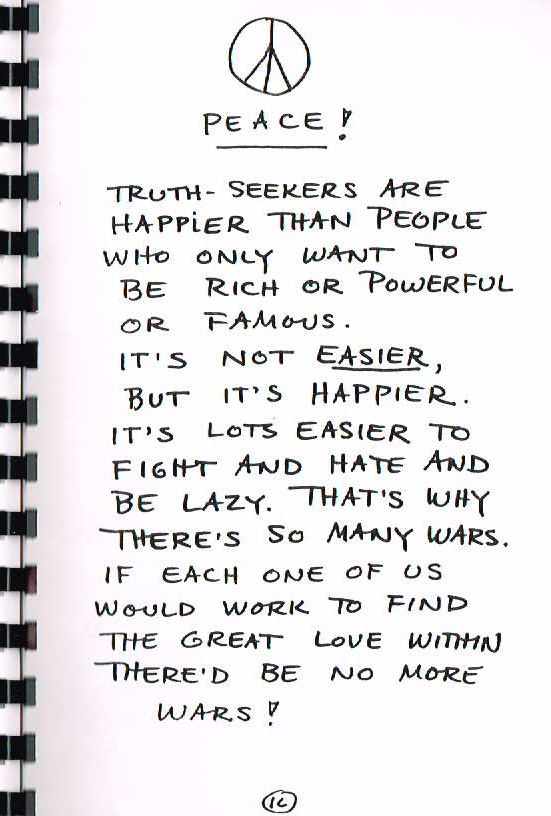 PEACE!
TRUTH-SEEKERS ARE
HAPPIER THAN PEOPLE
WHO ONLY WANT TO
BE RICH OR POWERFUL
OR FAMOUS.
IT'S NOT EASIER,
BUT IT'S HAPPIER.
IT'S LOTS EASIER TO
FIGHT AND HATE AND
BE LAZY. THAT'S WHY
THERE'S SO MANY WARS.
IF EACH ONE OF US
WOULD WORK TO FIND
THE GREAT LOVE WITHIN
THERE'D BE NO MORE
WARS!